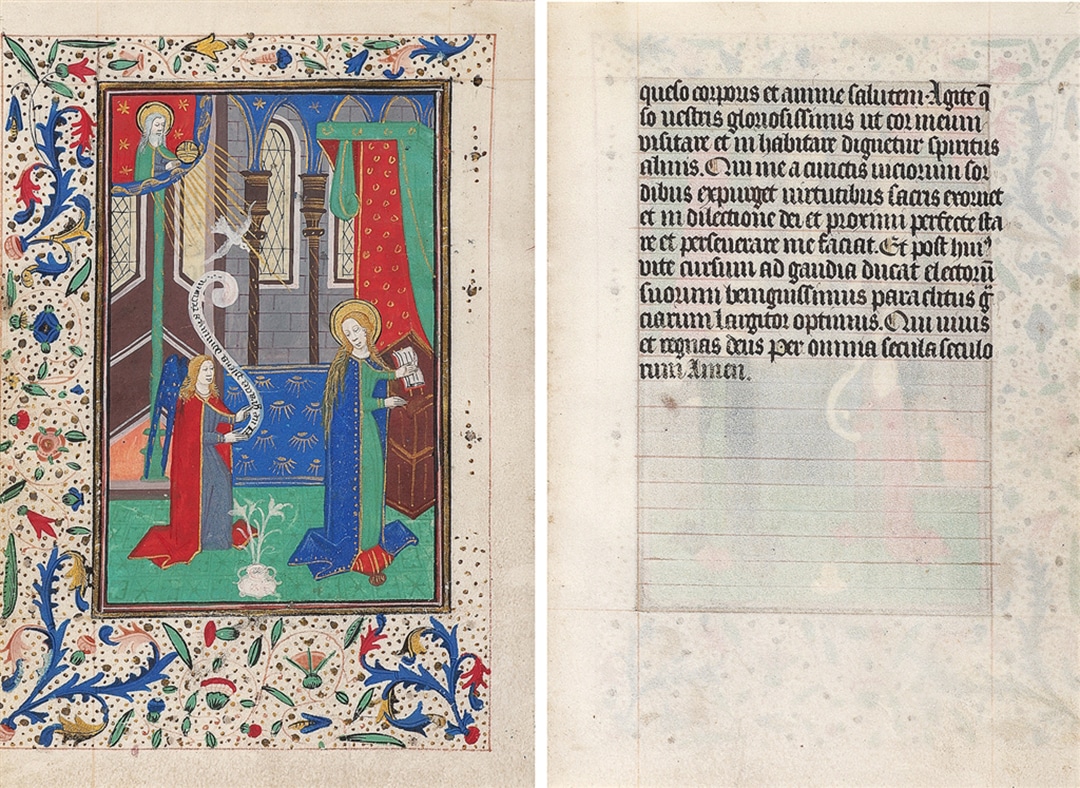 gratia plena dominus tecum
queso corporis et anime salutem. Agite q̄
so uestris gloriosissimus ut cor meum
visitare et in habitare dignetur spiritus
almus. Qui me a cunctis viciorum sor
dibus expurget virtutibus sacris exornet
et in dilectione dei et proximi perfecte sta
re et perseuerare me faciat. Et post huiꝰ
vite cursum ad gaudia ducat electorū
suorum benignissimus paraclitus g̃
ciarum largitor optimus. Qui uiuis
et regnas deus per omnia secula seculo
rum Amen.